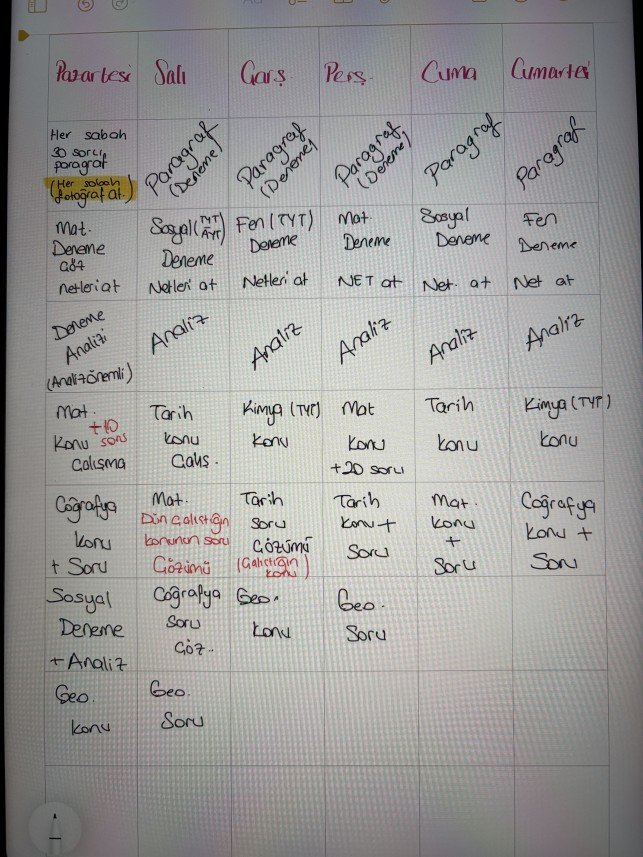 Pazartesi Salı Çarş Perş. Cuma Cumartesi
Her sabah
30 soruluk
paragraf
(Her sabah
fotoğraf at.)
Paragraf
(Deneme)
Paragraf
(Deneme)
Paragraf
(Deneme)
Paragraf
Paragraf
Mat.
Deneme
Çöz
netleri at
Sosyal (TYT
AYT)
Deneme
Netleri at
Fen (TYT)
Deneme
Netleri at
Mat.
Deneme
NET at
Sosyal
Deneme
Net. at
Fen
Deneme
Net at
Deneme
Analizi
(Analiz önemli)
Analiz
Analiz
Analiz
Analiz
Analiz
Mat.
+10
Konu soru
Çalışma
Tarih
konu
Çalış.
Kimya (TYT)
Konu
Mat
Konu
+20 soru
Tarih
konu
Kimya (TYT)
konu
Coğrafya
konu
+ Soru
Mat.
Dün çalıştığın
konunun soru
Çözümü
Tarih
soru
Çözümü
(Çalıştığın
konu)
Tarih
konu +
Soru
Mat.
konu
+
Soru
Coğrafya
konu +
Soru
Sosyal
Deneme
+ Analiz
Coğrafya
soru
Çöz..
Geo.
konu
Geo.
Soru
Geo.
konu
Geo.
Soru